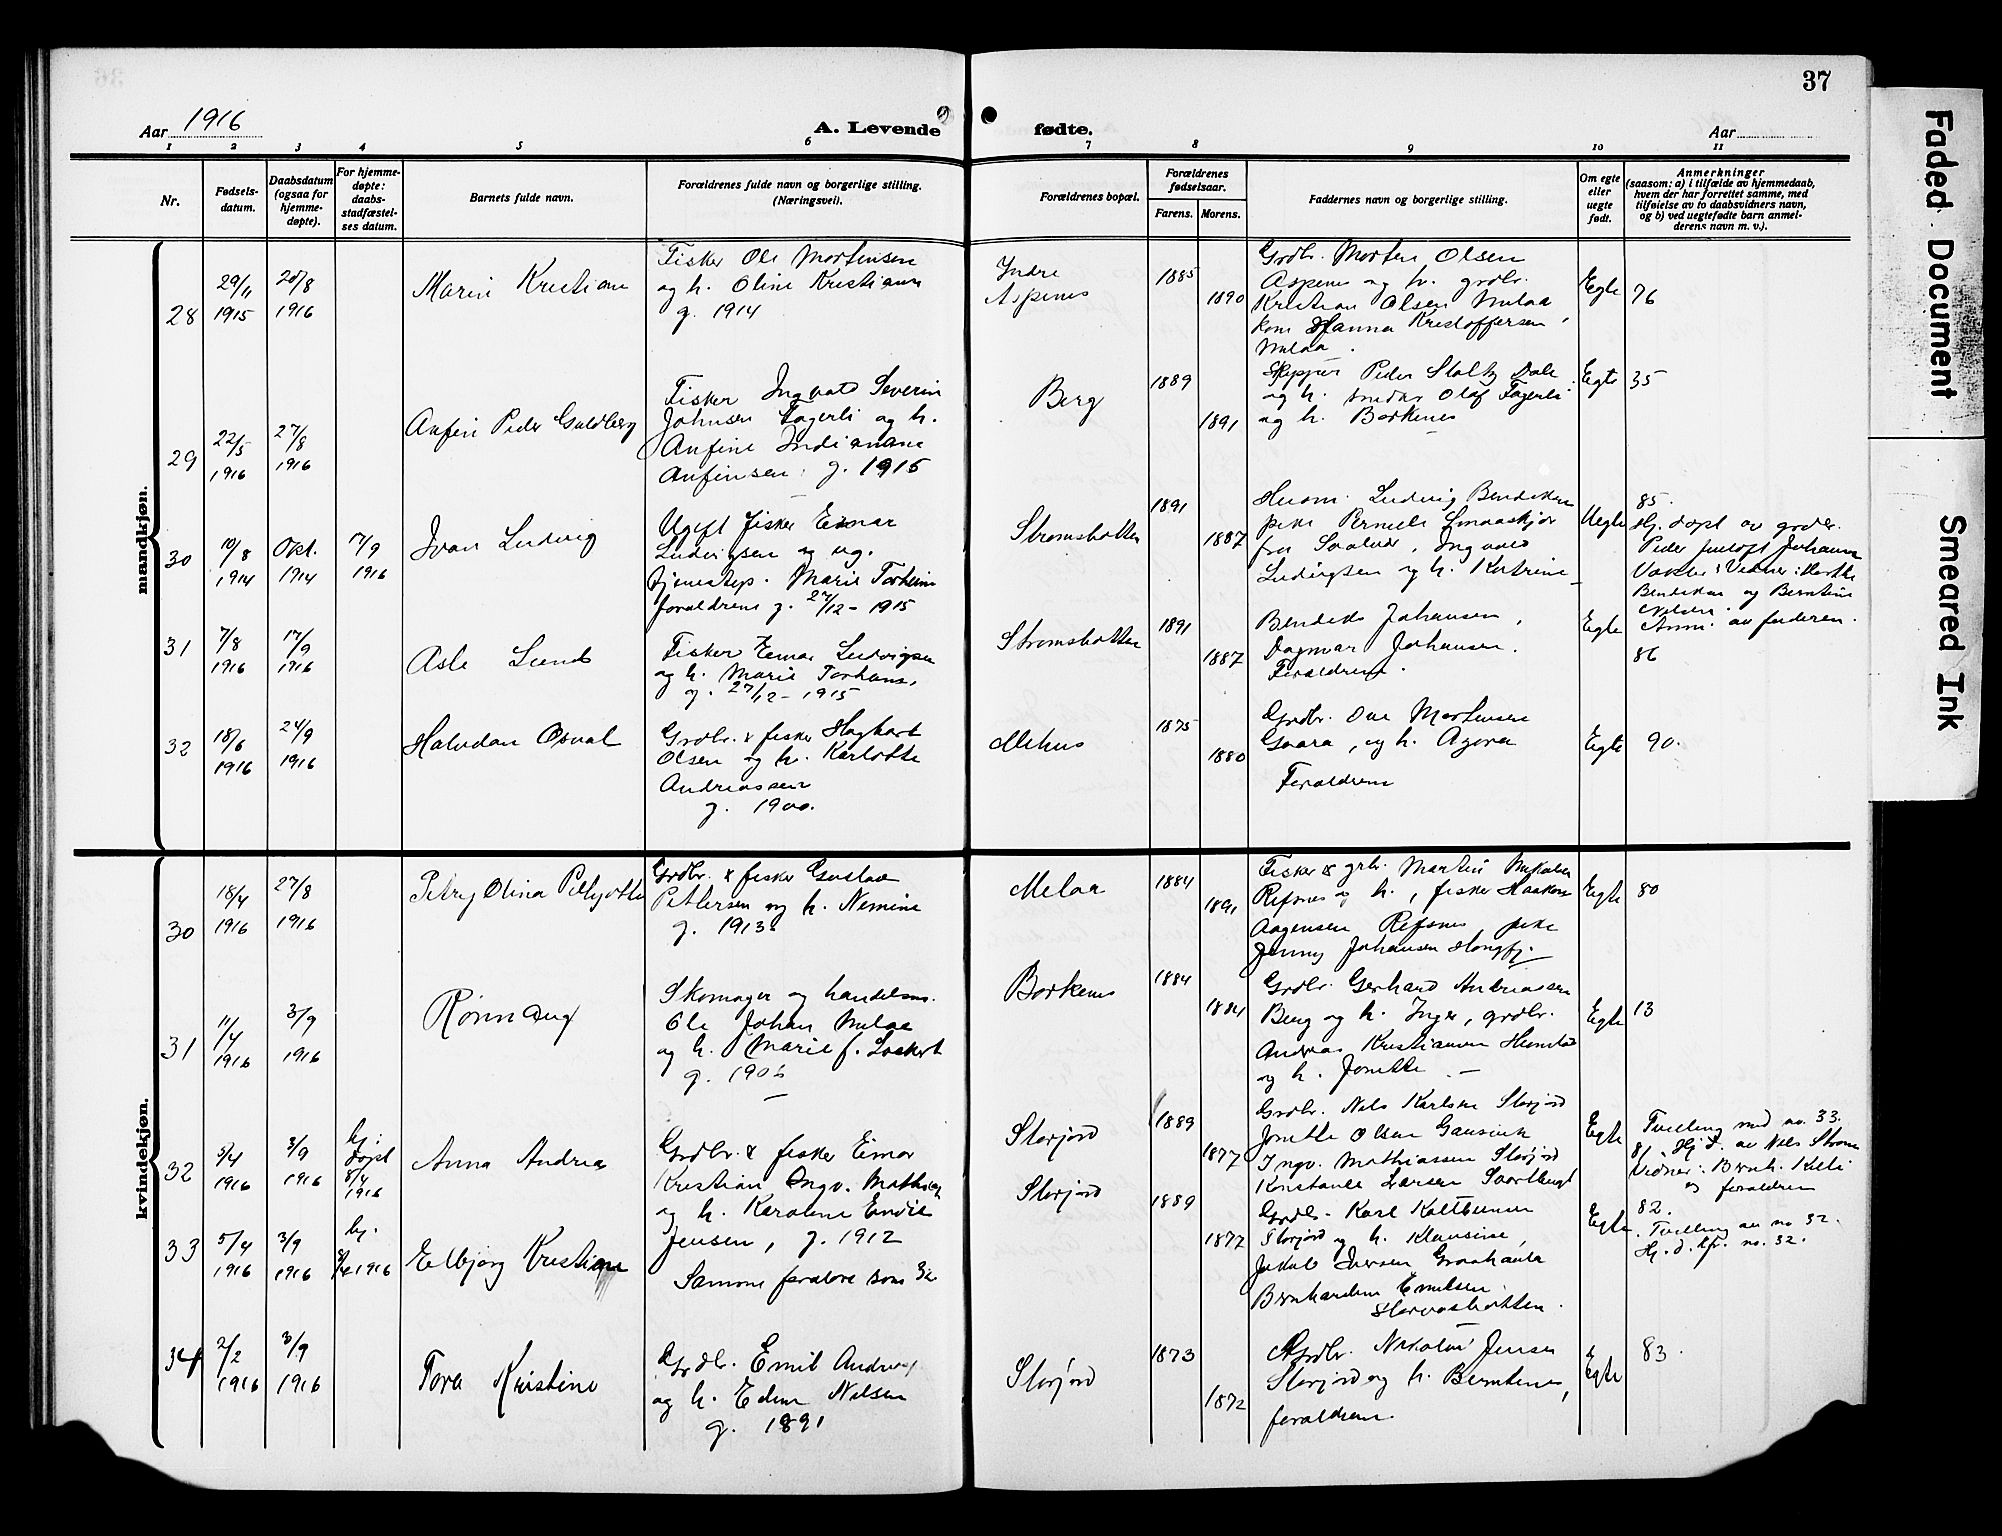 37
Aar 1916
A. Levende fødte.
Aar
1 2 3 4 5 6 7 8 9 10 11
Nr.
Fødsels-
datum.
Daabsdatum
(ogsaa for
hjemme-
døpte).
For hjemme-
døpte:
daabs-
stadfæstel-
ses datum.
Barnets fulde navn.
Forældrenes fulde navn og borgerlige stilling.
(Næringsvei).
Forældrenes bopæl.
Forældrenes
fødselsaar.
Farens. Morens.
Faddernes navn og borgerlige stilling.
Om egte
eller
uegte
født.
Anmerkninger
(saasom: a) i tilfælde av hjemmedaab,
hvem der har forrettet samme, med
tilføielse av to daabsvidners navn,
og b) ved uegtefødte barn anmel-
derens navn m. v.).
mandkjøn.
28
29/11
1915
20/8
1916
Marin Kristian
Fisker Ole Mortensen
og h. Oline Kristianne
g. 1914
Indre
Aspenes
1885
1890
Grdbr. Morten Olsen
Aspenes og h. grdbr.
Kristian Olsen Melaa
kone Hanna Kristoffersen,
Melaa.
Egte
76
29
22/5
1916
27/8
1916
Anfin Peder Guldberg
Fisker Ingvald Severin
Johnsen Fagerli og h.
Anfine Indianane
Anfinsen. g. 1915
Berg
1889
1891
Skipper Peder Stoltz Dale
og h. Olaf Fagerli
og h. Borkenes
Egte
35
30
10/8
1914
Okt.
1914
17/9
1916
Ivan Ludvig
Ugift fisker Einar
Ludvigsen og ug.
tjenestep. Marie Torheim
foraldrene g. 27/12 - 1915
Stromsbotten
1891
1887
Husm. Ludvig Bendiksen
pike Pernele
fra Ingvald
Ludvigsen og h. Katrine
Uegte
85.
Hj. døpt av grdbr.
Peder Johann
Vidner: Marthe
Bendiksen og Berntine
Nilsen.
Anm. av faderen.
31
7/8
1916
17/9
1916
Asle Lund
Fisker Einar Ludvigsen
og h. Marie Torheim,
g. 27/12 - 1915
Stromsbotten
1891
1887
Bendiks Johansen,
Dagmar Johansen.
Foraldrene.
Egte
86
32
18/6
1916
24/9
1916
Halvdan Osval
Grdbr. & fisker Hagbart
Olsen og h. Karlotte
Andreassen
g. 1900.
Mehus
1875
1880
Grdbr. Ove Mortensen
Gaara, og h. Agora
Foraldrene
Egte
90.
kvindekjøn.
30
18/4
1916
27/8
1916
Petry Olina
Grdbr. & fisker Gustav
Pettersen og h. Nemine
g. 1913
Melaa
1884
1891
Fisker & grbr. Martin Mikalsen
Refsnes og h., fisker Haakon
Aagensen Refsnes pike
Jenny Johansen
Egte
80
31
11/4
1916
3/9
1916
Rønnaug
Skomager og handelsm.
Ole Johan Melaa
og h. Marie f. Lockert
g. 1906
Borkenes
1884
1884
Grdbr. Gerhard Andreassen
Berg og h. Inger, grdbr.
Andreas Kristiansen
og h. Jonette.
Egte
13
32
5/4
1916
3/9
1916
hj.
døpt
8/4
1916
Anna Andrea
Grdbr. & fisker Einar
Kristian Ingv. Mathisen
og h. Karoline Emilie
Jensen, g. 1912
Storjord
1889
1877
Grdbr. Nils Karlsen Storjord
Jonette Olsen Gausvik
Ingv. Mathiassen Storjord
Konstanse Larsen
Egte
Tvilling med no. 33.
81. Hj. d. av Nils Strøm
Vidner: Bernh. Keli
og foraldren
33
5/4
1916
3/9
1916
hj.
8/4 1916
Elbjørg Kristiane
Samme foraldre som 32
Storjord
1889
1877
Grdbr. Karl
Storjord og h. Klausine,
Jakob Iversen
Bernhardine Emilsen.
Egte
82.
Tvilling av no 32.
Hj. d. kfr. no. 32.
34
2/2
1916
3/9
1916
Tora Kristine
Grdbr. Emil Andreas
og h. Edin Nilsen
g. 1891
Storjord
1873
1872
Grdbr. Nikolai Jensen
Storjord og h. Berntine,
foraldrene.
Egte
83.
Faded Document
Smeared Ink